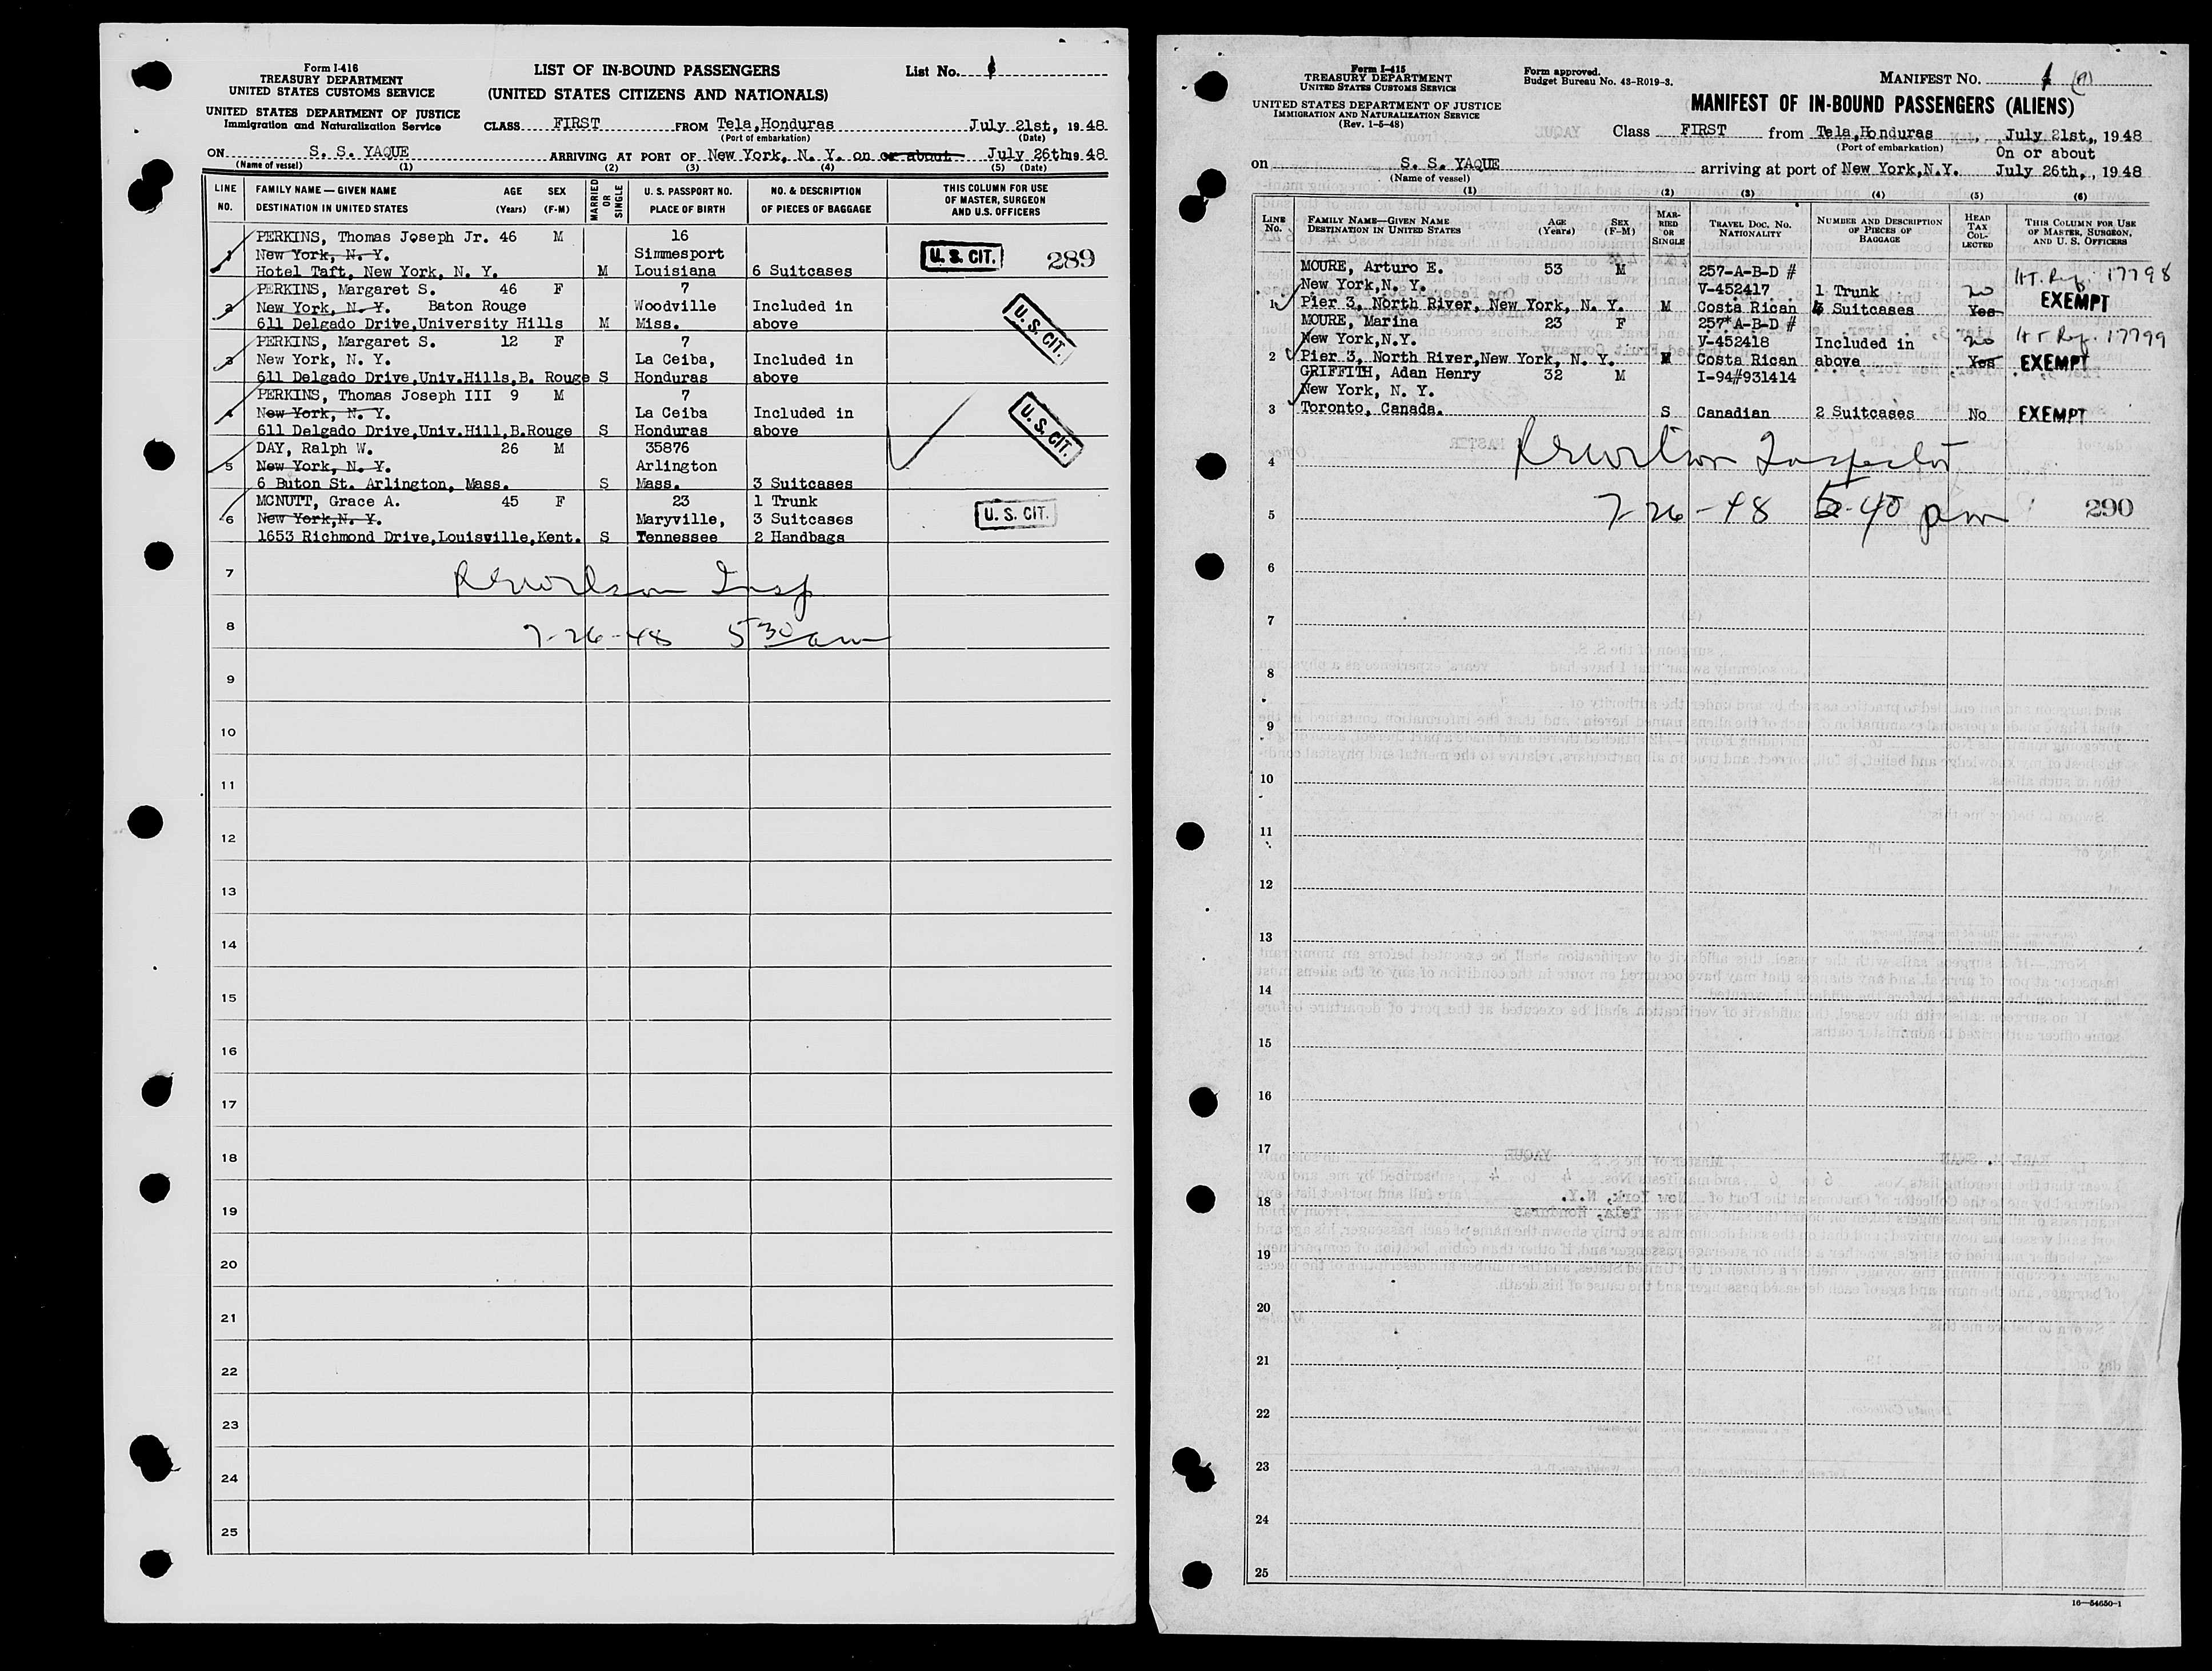 Form I-416
TREASURY DEPARTMENT
UNITED STATES CUSTOMS SERVICE
UNITED STATES DEPARTMENT OF JUSTICE
Immigration and Naturalization Service
LIST OF IN-BOUND PASSENGERS
(UNITED STATES CITIZENS AND NATIONALS)
List No. 1
CLASS FIRST FROM Tela,Honduras July 21st, 1948
(Port of embarkation) (Date)
ON S. S. YAQUE ARRIVING AT PORT OF New York, N. Y. on or about July 26th 1948
(Name of vessel) (1) (2) (3) (4) (5) (Date)
LINE NO. FAMILY NAME — GIVEN NAME DESTINATION IN UNITED STATES AGE (Years) SEX (F-M) MARRIED OR SINGLE U. S. PASSPORT NO. PLACE OF BIRTH NO. & DESCRIPTION OF PIECES OF BAGGAGE THIS COLUMN FOR USE OF MASTER, SURGEON AND U.S. OFFICERS
PERKINS, Thomas Joseph Jr. 46 M 16
1 New York, N. Y. Simmesport U. S. CIT. 289
Hotel Taft, New York, N. Y. M Louisiana 6 Suitcases
PERKINS, Margaret S. 46 F 7
2 New York, N. Y. Baton Rouge Woodville Included in
611 Delgado Drive,University Hills M Miss. above U. S. CIT.
PERKINS, Margaret S. 12 F 7
3 New York, N. Y. La Ceiba, Included in
611 Delgado Drive,Univ.Hills,B. Rouge S Honduras above
PERKINS, Thomas Joseph III 9 M 7
4 New York, N. Y. La Ceiba Included in
611 Delgado Drive,Univ.Hill,B.Rouge S Honduras above U. S. CIT.
DAY, Ralph W. 26 M 35876
5 New York, N. Y. Arlington
6 Buton St. Arlington, Mass. S Mass. 3 Suitcases
MCNUTT, Grace A. 45 F 23 1 Trunk
6 New York,N. Y. Maryville, 3 Suitcases U. S. CIT.
1653 Richmond Drive,Louisville,Kent. S Tennessee 2 Handbags
7 Insp
8 7-26-48 5 30 am
9
10
11
12
13
14
15
16
17
18
19
20
21
22
23
24
25
Form I-415
TREASURY DEPARTMENT
UNITED STATES CUSTOMS SERVICE
UNITED STATES DEPARTMENT OF JUSTICE
IMMIGRATION AND NATURALIZATION SERVICE
(Rev. 1-5-48)
Form approved.
Budget Bureau No. 43-R019-3.
MANIFEST NO. 1
MANIFEST OF IN-BOUND PASSENGERS (ALIENS)
Class FIRST from Tela,Honduras, July 21st,, 1948
(Port of embarkation) On or about
on S. S. YAQUE arriving at port of New York,N.Y. July 26th,, 1948
(Name of vessel)
(1) (2) (3) (4) (5) (6)
LINE No. FAMILY NAME—GIVEN NAME DESTINATION IN UNITED STATES AGE (Years) SEX (F-M) MARRIED OR SINGLE TRAVEL DOC. NO. NATIONALITY NUMBER AND DESCRIPTION OF PIECES OF BAGGAGE HEAD TAX COLLECTED THIS COLUMN FOR USE OF MASTER, SURGEON, AND U. S. OFFICERS
MOURE, Arturo E. 53 M 257-A-B-D # HT. Rej. 17798
New York,N. Y. V-452417 1 Trunk no EXEMPT
1 Pier 3, North River, New York, N. Y. M Costa Rican Suitcases Yes
MOURE, Marina 23 F 257*A-B-D # HT Rej. 17799
New York,N.Y. V-452418 Included in no
2 Pier 3, North River,New York, N. Y. M Costa Rican above Yes EXEMPT
GRIFFITH, Adan Henry 32 M I-94#931414
New York, N. Y.
3 Toronto, Canada. S Canadian 2 Suitcases No EXEMPT
4 Inspector
5 7-26-48 5-40 pm 290
6
7
8
9
10
11
12
13
14
15
16
17
18
19
20
21
22
23
24
25
16—54650-1